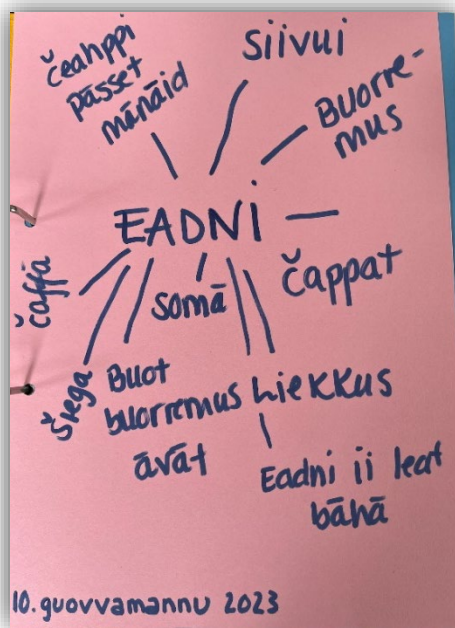 čeahppi
pāsset
mānāid
siivui
Buorre-
mus
EADNI
čaffa
somā
čappat
Šiega
Buot
buorremus
āvāt
hiekkus
Eadni ii leat
bāhā
10. guovvamannu 2023